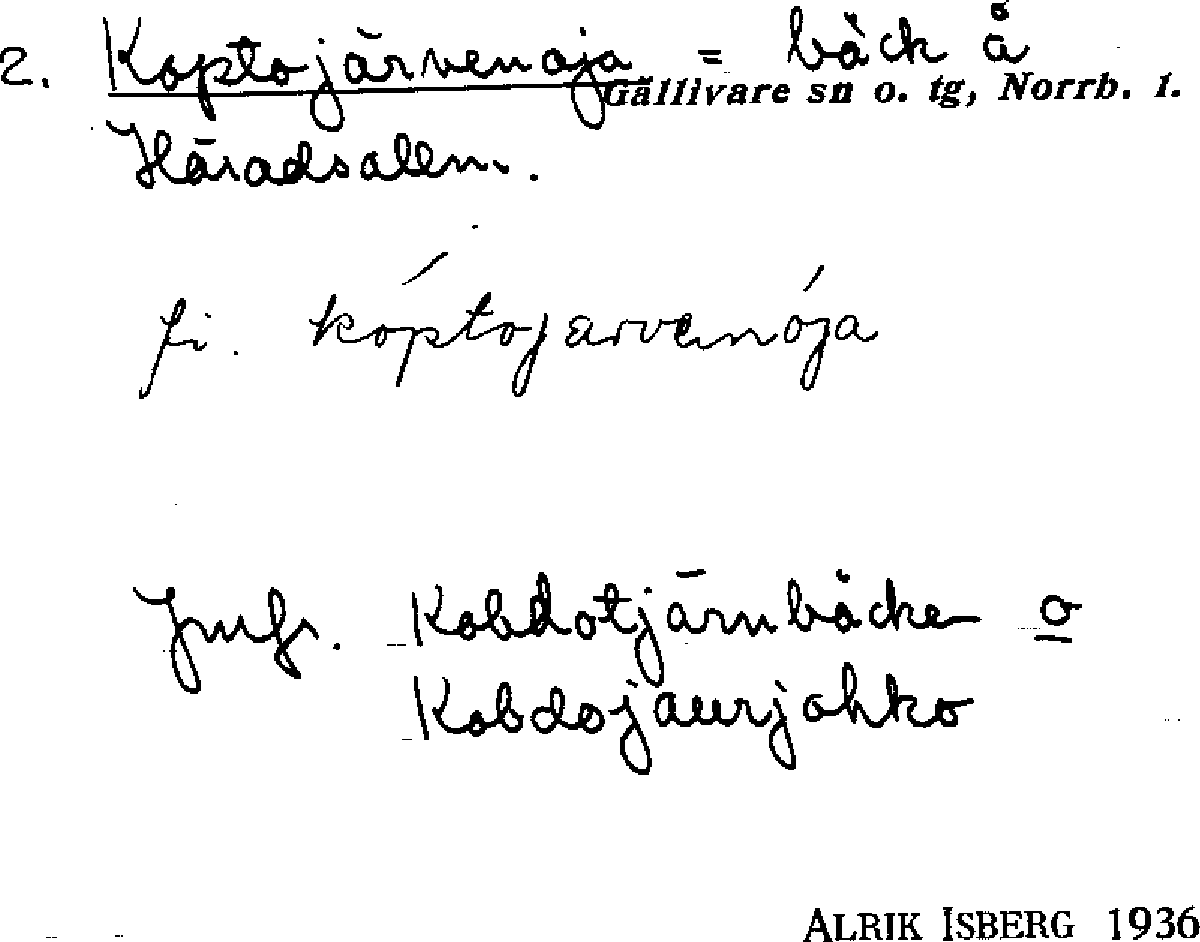 2. Koptojärvenoja = bäck å
Gällivare sn o. tg, Norrb. l.
Häradsallm.
fi. kóptojarvenója
Jmfr. Kobdotjärnbäcken o
Kobdojaurjohko
ALRIK ISBERG 1936